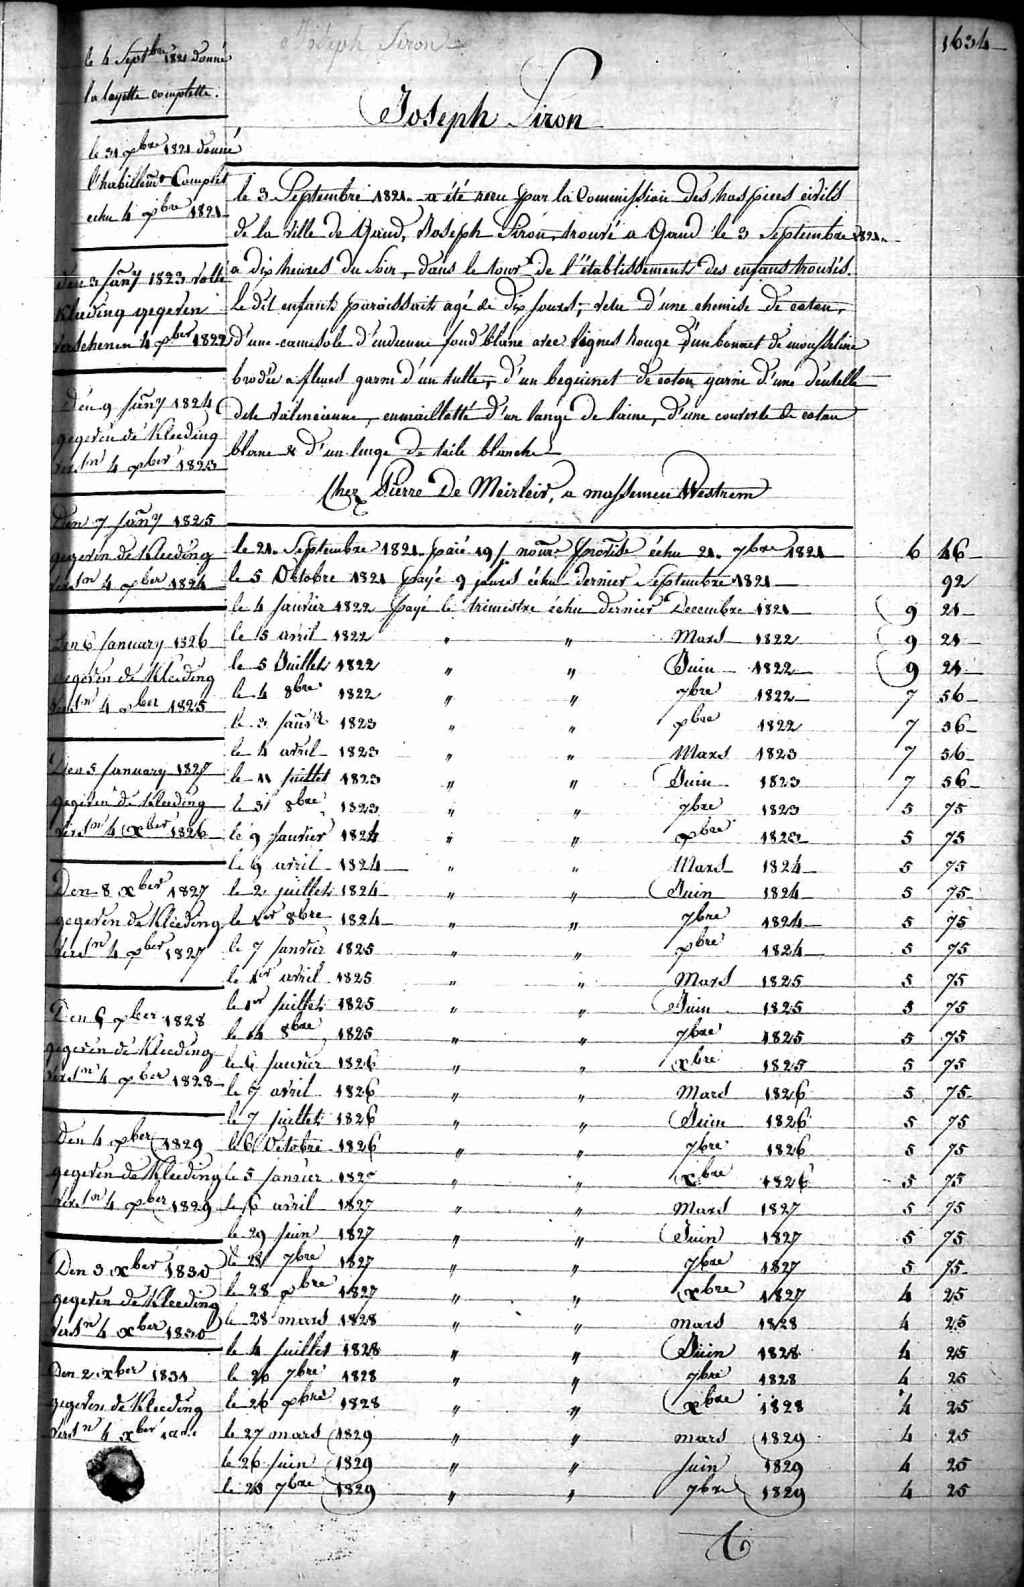 1634
Joseph Siron
Joseph Siron
le 4 Septbre 1821 donné
la layette complette.
le 31 xbre 1821 donné
l'habillemt Complet
echu 4 xbre 1821
den 3 Jany 1823 volle
Kleeding gegeven
verschenen 4 xber 1822
Den 9 Jany 1824
gegeven de Kleeding
versn 4 xber 1823
Den 7 Jany 1825
gegeven de Kleeding
versn 4 xber 1824
Den 6 January 1826
gegeven de Kleeding
versn 4 xber 1825
Den 5 January 1827
gegeven de Kleeding
versn 4 xber 1826
Den 8 xber 1827
gegeven de Kleeding
versn 4 xber 1827
Den 6 xber 1828
gegeven de Kleeding
versn 4 xber 1828
Den 4 xber 1829
gegeven de Kleeding
versn 4 xber 1829
Den 3 xber 1830
gegeven de Kleeding
versn 4 xber 1830
Den 2 xber 1831
gegeven de Kleeding
versn 4 xber
le 3 Septembre 1821 a été reçu par la Commission des hospices civils
de la ville de Gand, Joseph Siron, trouvé a Gand le 3 Septembre 1821.
a dix heures du soir, dans le tour de l'établissement des enfans trouvés.
le dit enfant paraissait agé de dix jours, vetu d'une chemise de coton,
d'une camisole d'indienne fond blanc avec lignes Rouge, d'un bonnet de mousseline
brodée a fleurs garni d'un tulle, d'un beguinet de coton garni d'une dentelle
dete valencienne, enmaillotté d'un lange de laine, d'une couverte de coton
blanc & d'un linge de toile blanche
Chez Pierre De Meirleir, a massemen Westrem
le 21 Septembre 1821 payé 19 j nourre Provise échu 21 7bre 1821 6 46
le 5 Octobre 1821 payé 9 jours échu dernier Septembre 1821 92
le 4 Janvier 1822 payé le trimestre échu dernier Decembre 1821 9 21
le 5 avril 1822 " " Mars 1822 9 21
le 5 Juillet 1822 " " Juin 1822 9 21
le 4 8bre 1822 " " 7bre 1822 7 56
le 3 Janvr 1823 " " xbre 1822 7 56
le 4 avril 1823 " " Mars 1823 7 56
le 11 Juillet 1823 " " Juin 1823 7 56
le 31 8bre 1823 " " 7bre 1823 5 75
le 9 Janvier 1824 " " xbre 1823 5 75
le 9 avril 1824 " " Mars 1824 5 75
le 2 juillet 1824 " " Juin 1824 5 75
le 1er 8bre 1824 " " 7bre 1824 5 75
le 7 Janvier 1825 " " xbre 1824 5 75
le 1er avril 1825 " " Mars 1825 5 75
le 1er Juillet 1825 " " Juin 1825 5 75
le 14 8bre 1825 " " 7bre 1825 5 75
le 6 Janvier 1826 " " xbre 1825 5 75
le 7 avril 1826 " " Mars 1826 5 75
le 7 juillet 1826 " " Juin 1826 5 75
le 6 Octobre 1826 " " 7bre 1826 5 75
le 5 Janvier 1827 " " xbre 1826 5 75
le 6 avril 1827 " " Mars 1827 5 75
le 29 Juin 1827 " " Juin 1827 5 75
le 28 7bre 1827 " " 7bre 1827 5 75
le 28 xbre 1827 " " xbre 1827 4 25
le 28 mars 1828 " " mars 1828 4 25
le 4 Juillet 1828 " " Juin 1828 4 25
le 26 7bre 1828 " " 7bre 1828 4 25
le 26 xbre 1828 " " xbre 1828 4 25
le 27 mars 1829 " " mars 1829 4 25
le 26 Juin 1829 " " Juin 1829 4 25
le 25 7bre 1829 " " 7bre 1829 4 25